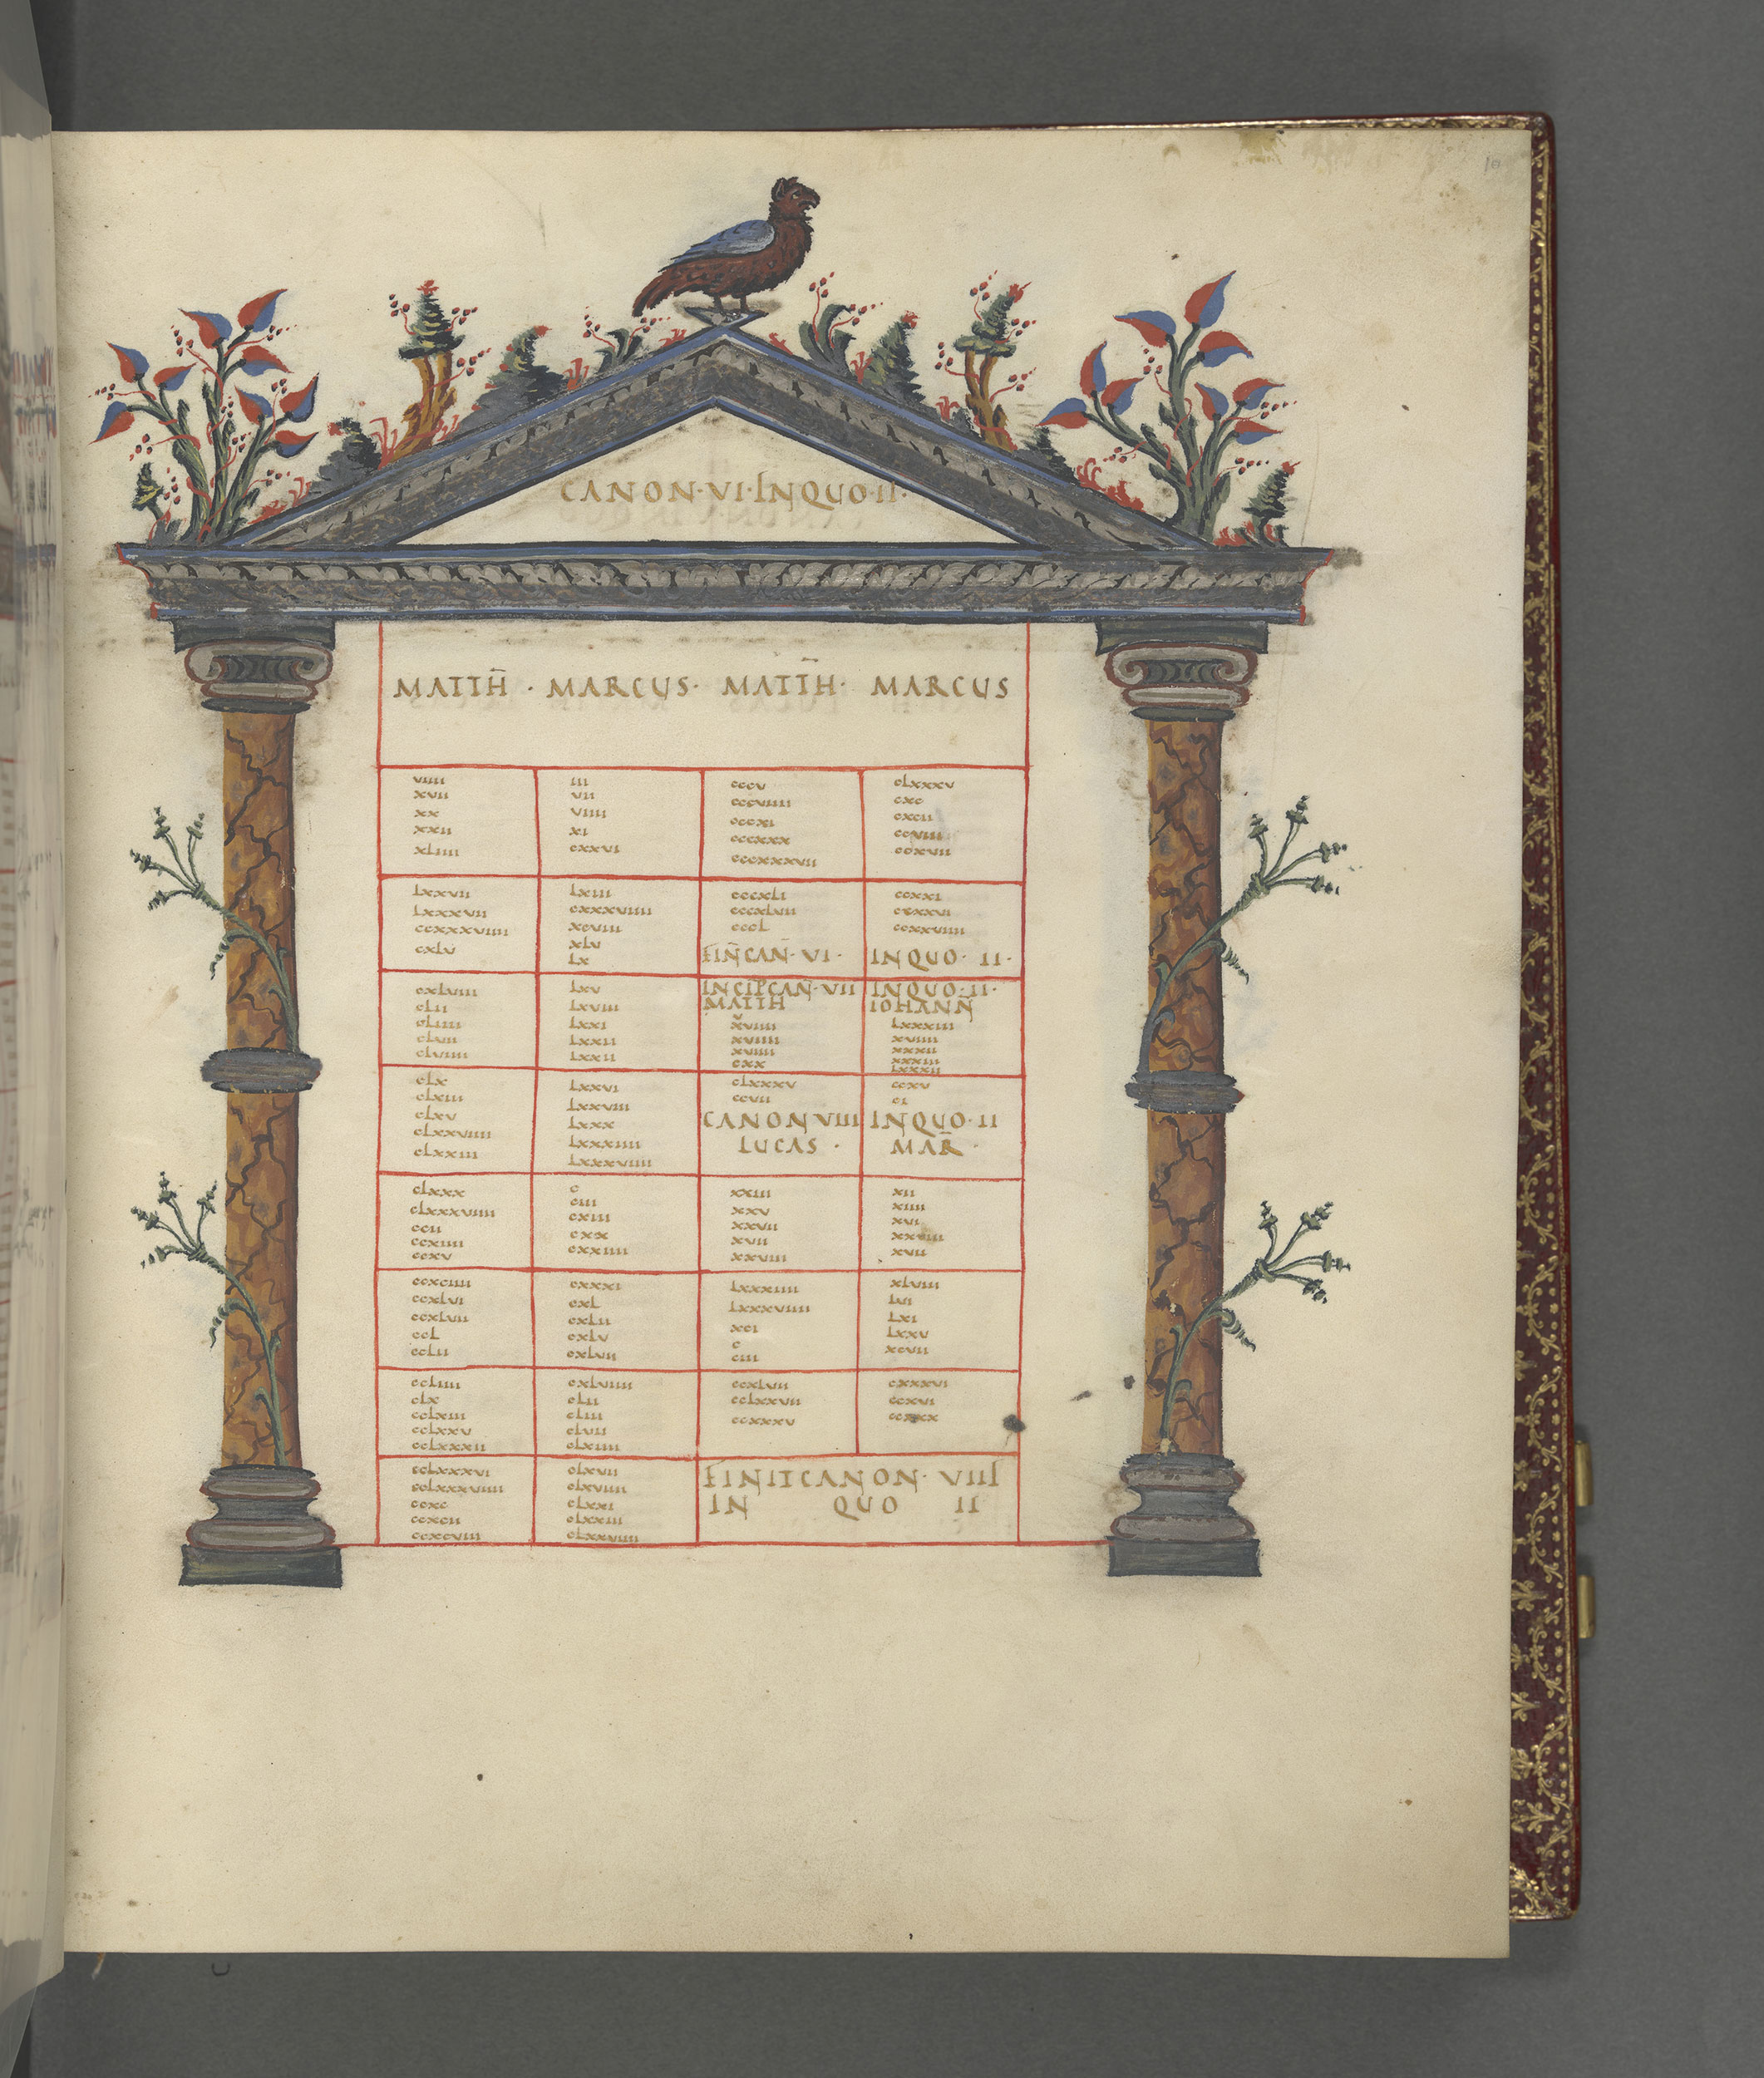 10
CANON·VI·INQUO·II·
MATTH̄ · MARCUS· MATTH̄· MARCUS
viiii iii cccv clxxxv
xvii vii cccviiii cxc
xx viiii cccxi cxcii
xxii xi cccxxx ccviiii
xliiii cxxvi cccxxxvii ccxvii
lxxvii lxiii cccxli ccxxi
lxxxvii cxxxviiii cccxlvii ccxxvi
ccxxxviiii xcviii cccl ccxxviiii
cxlv xlv FIN̄CAN̄· VI· INQUO· II·
lx
cxlviii lxv INCIPCAN̄·VII INQUO·II·
clii lxviii MATTH IOHANN̄
cliiii lxxi xviiii lxxxiii
clvii lxxii xviiii xviiii
clviiii lxxii xviiii xxxii
cxx xxxiii
lxxxii
clx lxxvi clxxxv ccxv
clxiii lxxviii ccvii ci
clxv lxxx CANONVIII INQUO·II
clxxviiii lxxxiiii LUCAS · MAR̄·
clxxiii lxxxviiii
clxxx c xxiii xii
clxxxviiii ciii xxv xiiii
ccii cxiii xxvii xvi
ccxiiii cxx xvii xxviii
ccxv cxxiiii xxviii xvii
ccxciiii cxxxi lxxxiiii xlviii
ccxlvi cxl lxxxviiii lvi
ccxlvii cxlii xci lxi
ccl cxlv c lxxv
cclii cxlvii ciii xcvii
ccliiii cxlviiii ccxlvii cxxxvi
clx clii cclxxvii ccxvi
cclxiii cliii ccxxxv
cclxxv clvii
cclxxxii clxiiii
cclxxxvi clxvii FINITCANON· VIII
cclxxxviiii clxviii IN QUO II
ccxc clxxi
ccxcii clxxiii
ccxcviii clxxviiii